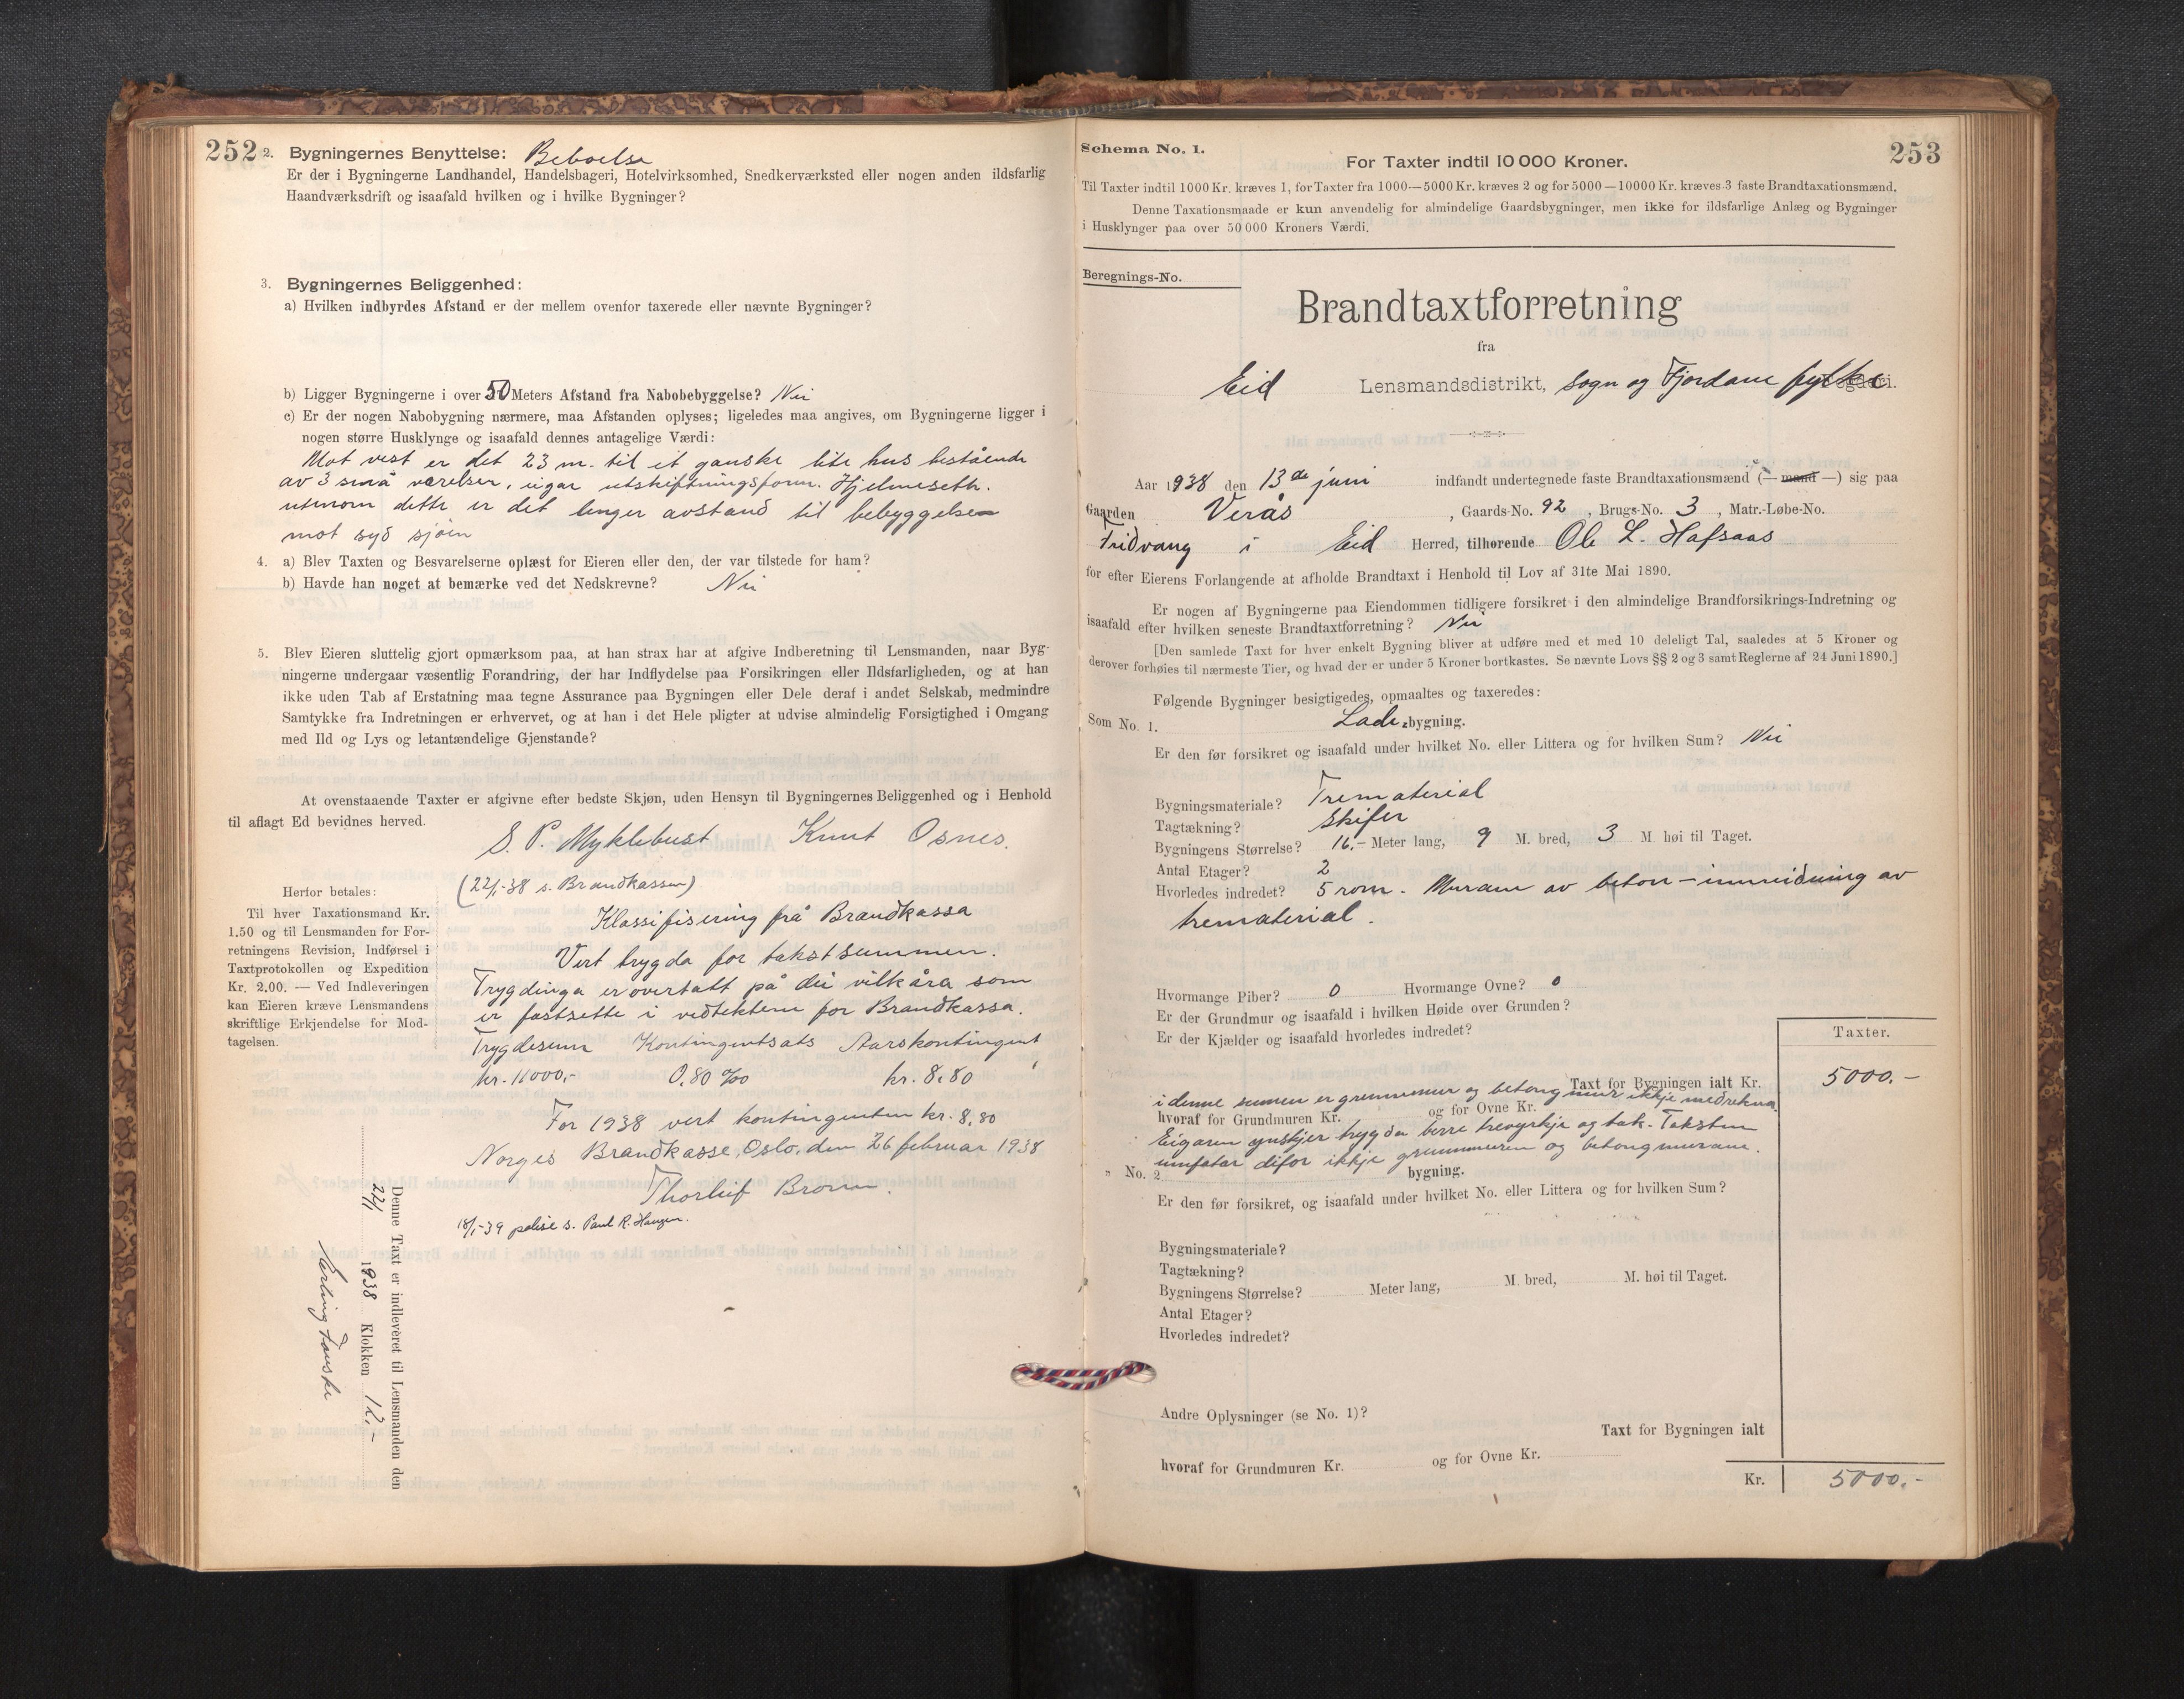 252
2. Bygningernes Benyttelse: Beboelse
Er der i Bygningerne Landhandel, Handelsbageri, Hotelvirksomhed, Snedkerværksted eller nogen anden ildsfarlig
Haandværksdrift og isaafald hvilken og i hvilke Bygninger?
3. Bygningernes Beliggenhed:
a) Hvilken indbyrdes Afstand er der mellem ovenfor taxerede eller nævnte Bygninger?
b) Ligger Bygningerne i over 50 Meters Afstand fra Nabobebyggelse? Nei
c) Er der nogen Nabobygning nærmere, maa Afstanden oplyses; ligeledes maa angives, om Bygningerne ligger i
nogen større Husklynge og isaafald dennes antagelige Værdi:
Mot vest er det 23 m. til et ganske lite hus bestående
av 3 små værelser, eigar utskiftningsform. Hjelmeseth.
utenom dette er det lenger avstand til bebyggelsen
mot syd sjøen
4. a) Blev Taxten og Besvarelserne oplæst for Eieren eller den, der var tilstede for ham?
b) Havde han noget at bemærke ved det Nedskrevne? Nei
5. Blev Eieren sluttelig gjort opmærksom paa, at han strax har at afgive Indberetning til Lensmanden, naar Byg-
ningerne undergaar væsentlig Forandring, der har Indflydelse paa Forsikringen eller Ildsfarligheden, og at han
ikke uden Tab af Erstatning maa tegne Assurance paa Bygningen eller Dele deraf i andet Selskab, medmindre
Samtykke fra Indretningen er erhvervet, og at han i det Hele pligter at udvise almindelig Forsigtighed i Omgang
med Ild og Lys og letantændelige Gjenstande?
At ovenstaaende Taxter er afgivne efter bedste Skjøn, uden Hensyn til Bygningernes Beliggenhed og i Henhold
til aflagt Ed bevidnes herved.
S. P. Myklebust Knut Osnes.
(22/1-38 s. Brandkassen)
Klassifisering frå Brandkassa
Vert trygda for takstsummen.
Trygdinga er overtatt på dei vilkåra som
er fastsette i vedtektene for Brandkassa.
Trygdesum Kontingentsats Aarskontingent
kr. 11000,- 0,80 ‰ kr. 8,80
For 1938 vert kontingenten kr. 8,80
Norges Brandkasse, Oslo, den 26 februar 1938
Thorleif Broun.
18/1-39 polise s. Paul R. Haugen.
Herfor betales:
Til hver Taxationsmand Kr.
1.50 og til Lensmanden for For-
retningens Revision, Indførsel i
Taxtprotokollen og Expedition
Kr. 2.00. — Ved Indleveringen
kan Eieren kræve Lensmandens
skriftlige Erkjendelse for Mod-
tagelsen.
Denne Taxt er indleveret til Lensmanden den
22/1 1938 Klokken 12.-
Erling Fauske
253
Schema No. 1.
For Taxter indtil 10 000 Kroner.
Til Taxter indtil 1000 Kr. kræves 1, for Taxter fra 1000—5000 Kr. kræves 2 og for 5000—10000 Kr. kræves 3 faste Brandtaxationsmænd.
Denne Taxationsmaade er kun anvendelig for almindelige Gaardsbygninger, men ikke for ildsfarlige Anlæg og Bygninger
i Husklynger paa over 50 000 Kroners Værdi.
Beregnings-No.
Brandtaxtforretning
fra
Eid Lensmandsdistrikt, Sogn og Fjordane fylke
Aar 1938 den 13de juni indfandt undertegnede faste Brandtaxationsmænd (— mand —) sig paa
Gaarden Verås, Gaards-No. 92, Brugs-No. 3, Matr.-Løbe-No.
Fridvang i Eid Herred, tilhørende Ole L. Hafsaas
for efter Eierens Forlangende at afholde Brandtaxt i Henhold til Lov af 31te Mai 1890.
Er nogen af Bygningerne paa Eiendommen tidligere forsikret i den almindelige Brandforsikrings-Indretning og
isaafald efter hvilken seneste Brandtaxtforretning? Nei
[Den samlede Taxt for hver enkelt Bygning bliver at udføre med et med 10 deleligt Tal, saaledes at 5 Kroner og
derover forhøies til nærmeste Tier, og hvad der er under 5 Kroner bortkastes. Se nævnte Lovs §§ 2 og 3 samt Reglerne af 24 Juni 1890.]
Følgende Bygninger besigtigedes, opmaaltes og taxeredes:
Som No. 1. Lade bygning.
Er den før forsikret og isaafald under hvilket No. eller Littera og for hvilken Sum? Nei
Bygningsmateriale? Tremateriał
Tagtækning? Skifer
Bygningens Størrelse? 16.- Meter lang, 9 M. bred, 3 M. høi til Taget.
Antal Etager? 2
Hvorledes indredet? 5 rom. Murane av beton - innreidning av
tremateriał.
Hvormange Piber? 0 Hvormange Ovne? 0
Er der Grundmur og isaafald i hvilken Høide over Grunden?
Er der Kjælder og isaafald hvorledes indredet?
Taxter.
Taxt for Bygningen ialt Kr. 5000.-
i denne sumen er grunnmur og betongmur ikkje medrekna
hvoraf for Grundmuren Kr. og for Ovne Kr.
Eigaren ynskjer trygda berre trevyrkje og tak. Taksten
umfatar difor ikkje grunnmuren og betongmurane.
" No. 2 bygning.
Er den før forsikret, og isaafald under hvilket No. eller Littera og for hvilken Sum?
Bygningsmateriale?
Tagtækning?
Bygningens Størrelse? Meter lang, M. bred, M. høi til Taget.
Antal Etager?
Hvorledes indredet?
Andre Oplysninger (se No. 1)?
Taxt for Bygningen ialt
hvoraf for Grundmuren Kr. og for Ovne Kr.
Kr. 5000.-